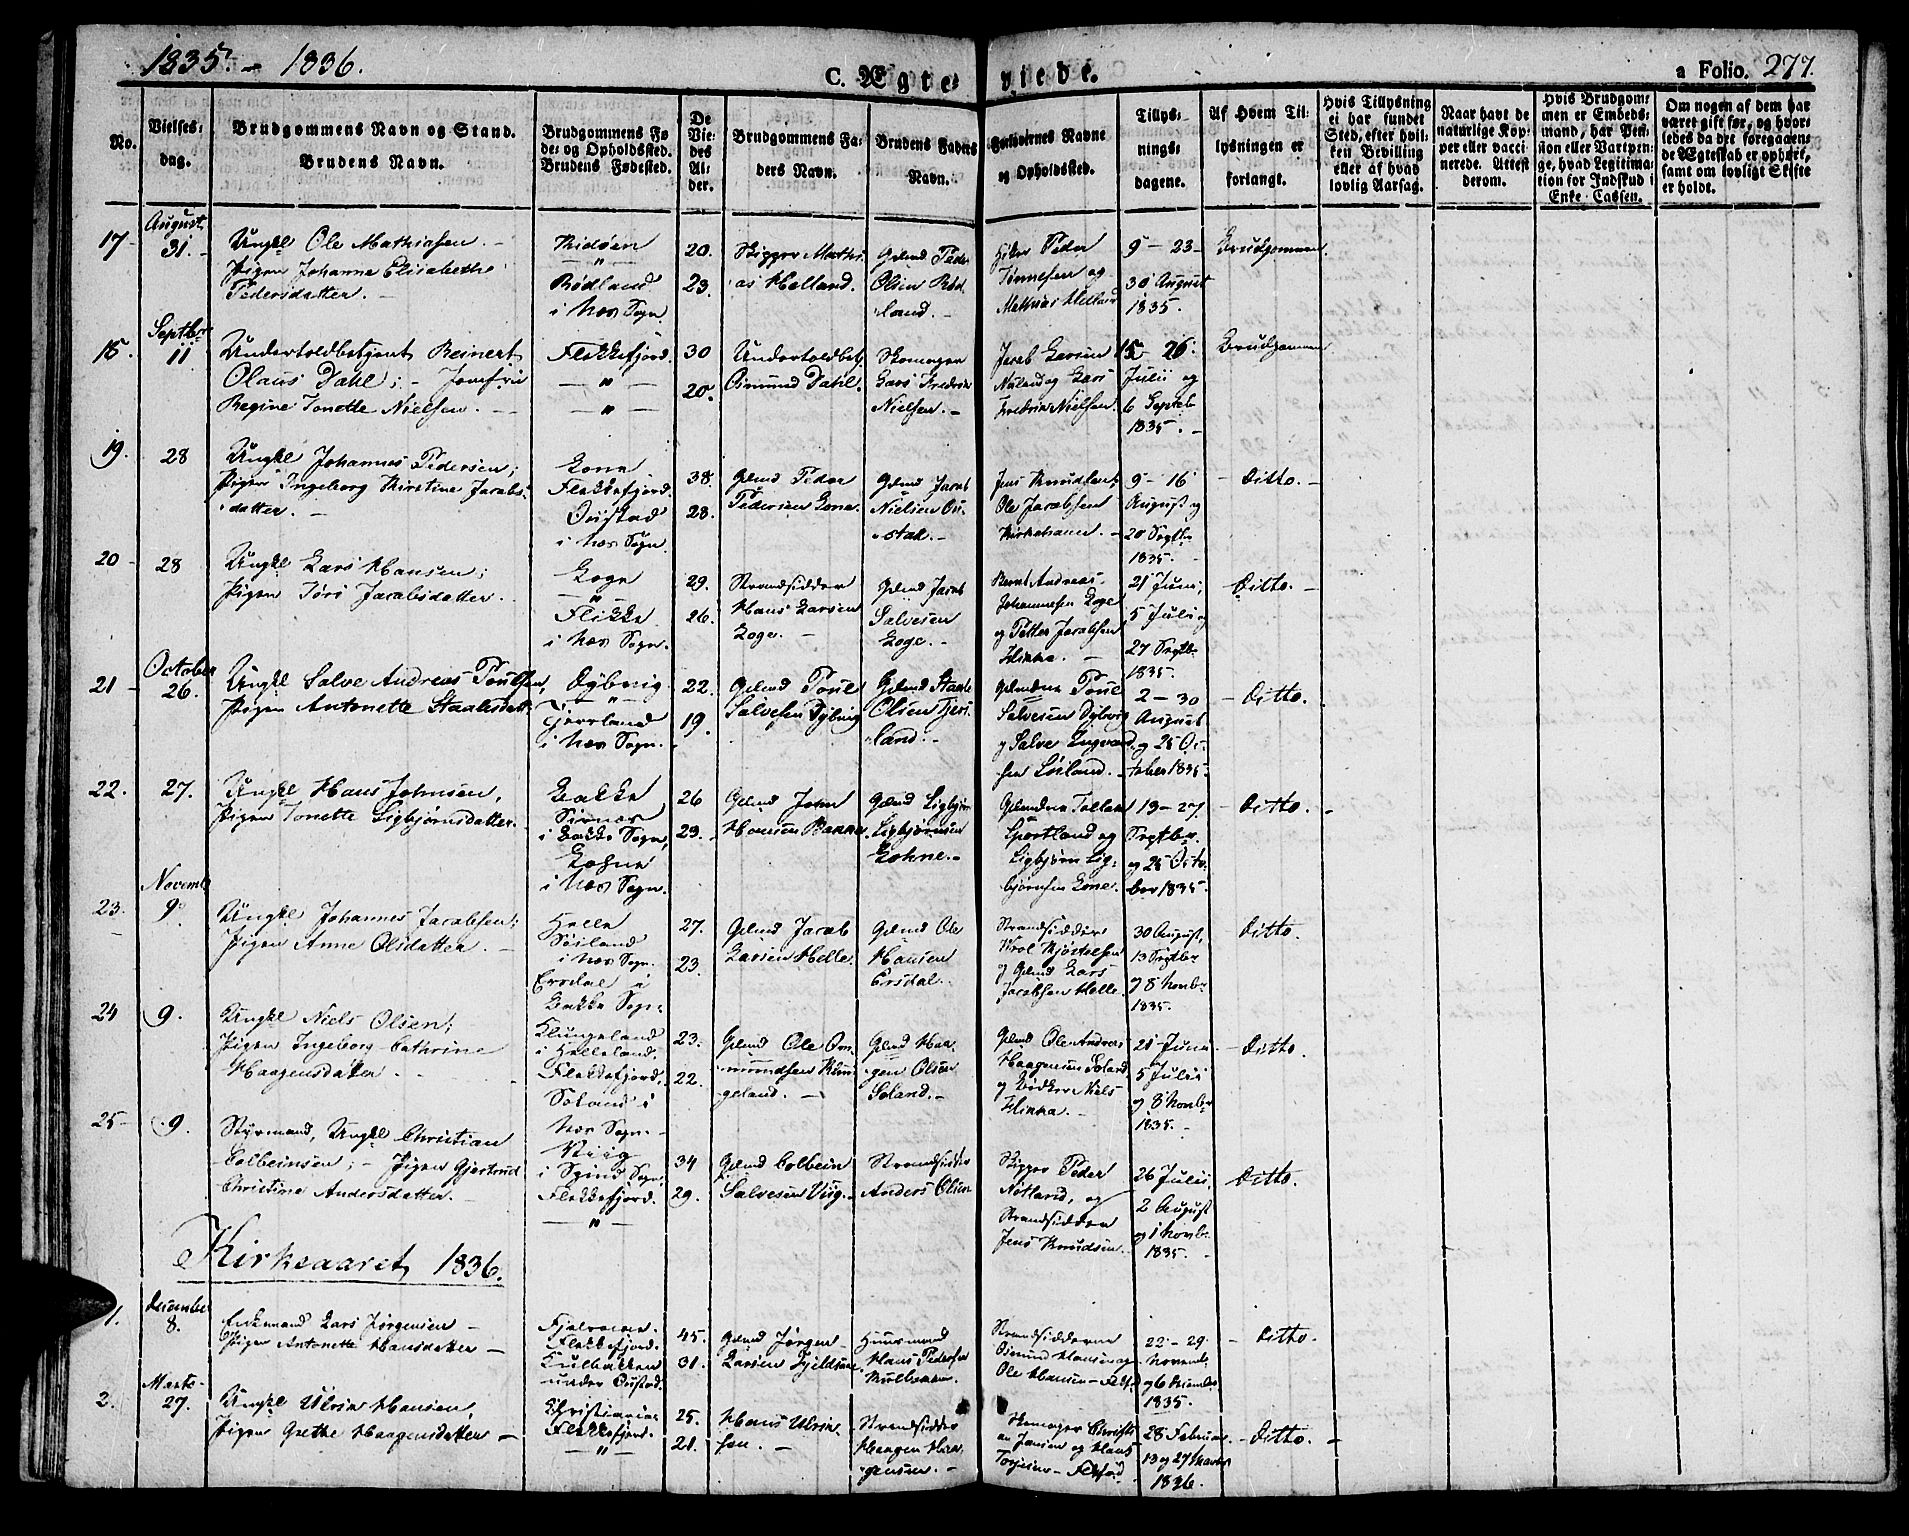 1835. - 1836.
C. Ægte-
viede.
a Folio. 277.
No.
Vielses-
dag.
Brudgommens Navn og Stand.
Brudens Navn.
Brudgommens Fø
de- og Opholdssted.
Brudens Fødested.
De
Vie-
des
Al-
der.
Brudgommens Fa-
ders Navn.
Brudens Faders
Navn.
Forlovernes Navne
og Opholdssted.
Tillys-
nings-
dagene.
Af Hvem Til-
lysningen er
forlangt.
Hvis Tillysning
ei har fundet
Sted, efter hvil-
ken Bevilling
eller af hvad
lovlig Aarsag.
Naar havt de
naturlige Kop-
per eller vacci-
nerede. Attest
derom.
Hvis Brudgom-
men er Embeds-
mand, har Pen-
sion eller Vartpen-
ge, hvad Legitima-
tion for Indskud i
Enke-Cassen.
Om nogen af dem har
været gift før, og hvor-
ledes da det foregaaen-
de Ægteskab er ophørt,
samt om lovligt Skifte
er holdt.
17-
August
31.
Ungkl Ole Mathiasen. -
Pigen Johanne Elisabeth
Pedersdatter. -
Hidøen
- " -
Rødland
i Næs Sogn.
20.
23.
Skipper Mathi
as Helland.
Gdmd Peder
Olsen Rød-
land. -
Peder
Tønnesen og
Mathias Helland
9 - 23 -
30 August
1835.
Brudgommen
18.
Septbr
11
Undertoldbetjent Reinert
Olaus Dahl; - Josefin
Regine Tonette Nielsen. -
Flekkefjord.
- " -
- " -
30
20.
Undertoldbetj.
Osmund Dahl.
Skomager
Lars Fredrik
Nielsen. -
Jacob Larsen
og Lars
Fredrik Nielsen.
15 26.
Julii og
6 Septeb
1835. -
Brudgommen
19.
28
Ungkl Johannes Pedersen;
Pigen Ingeborg Kirstine Jacobs-
datter. -
Lone
Flekkefjord.
Oustad
i Næs Sogn.
38.
28.
Gdmd Peder
Pedersen Lone.
Gdmd Jacob
Nielsen Ou-
stad. -
Jens Knudsen,
Ole Jacobsen
Kirkehavn. -
9 - 16
August og
20 Septb.
1835. -
- Ditto. -
20 -
28
Ungkl Lars Hansen;
Pigen Tóri Jacobsdatter. -
Loge
- " -
Flikke
i Næs Sogn.
29.
26.
Strandsidder
Hans Larsen
Loge. -
Gdmd Jacob
Salvesen
Loge. -
Bernt Andreas
Johannesen Loge
og Petter Jacobsen
Flikke. -
21 Juni;
5 Juli og
27 Septb.
1835. -
Ditto. -
21 -
October
26.
Ungkl Salve Andreas Poulsen,
Pigen Antonette Staalesdatt.
Dybvig
- " -
Tjørsland
i Næs Sogn.
22.
19.
Gdmd Poul
Salvesen Dybvig
Gdmd Staale
Olsen Tjørs-
land. -
Gdmdne Poul
Salvesen Dybvig
og Salve Ingvald-
sen Løiland. -
2 - 30
August
og 25 Oc-
tober 1835.
- Ditto. -
22.
27.
Ungkl Hans Johnsen,
Pigen Tonette Sigbjørnsdatter.
Bakke
Sirnæs
i Bakke Sogn,
Lohne
i Næs Sogn.
26
23.
Gdmd John
Hansen Bakke.
Gdmd Sigbjørn
Sigbjørnsen
Lohne. -
Gdmdne Tollak
Sportland og
Sigbjørn Sig-
bjørnsen Lone.
13 - 27
Septbr.
og 25 Octo-
ber 1835.
- Ditto. -
23.
Novemb
9.
Ungkl Johannes Jacobsen;
Pigen Anne Olsdatter. -
Helle
Søiland
i Næs Sogn.
Ersdal i
Bakke Sogn.
27.
23.
Gdmd Jacob
Larsen Helle.
Gdmd Ole
Hansen
Ersdal. -
Strandsidder
og Gdmd Lars
Jacobsen Helle.
30 August,
13 Septbr
og 8 Novbr
1835.
Ditto.
24
9.
Ungkl Niels Olsen;
Pigen Ingeborg Cathrine
Haagensdatter. -
Klungeland
i Helleland.
Flekkefjord,
Søland i
Næs Sogn. -
23.
22.
Gdmd Ole Om-
mundsen Klun-
geland. -
Gdmd Haa-
gen Olsen
Soland. -
Gdmd Ole Andreas
Haagensen Soland
og Bødker Niels
Flikka. -
21 Juni
5 Julii
og 8 Novbr
1835. -
- Ditto.
25 -
9.
Styrmand, Ungkl Christian
Colbeinsen; - Pigen Gjertrud
Christine Andersdatter. -
Viig
i Spind Sogn,
Flekkefjord.
- " -
34
29.
Gdmd Colbein
Salvesen Viig. -
Strandsidder
Anders Olsen
Skipper Peder
Nøtland, og
Strandsidder
Jens Knudsen. -
26 Julii,
2 August
og 1 Novbr.
1835. -
Ditto.
Kirkeaaret 1836.
1.
December
8.
Enkemand Lars Jørgensen -
Pigen Antonette Hansdatter -
Flekkefjord.
Kulbakken
under Oustad.
45.
31.
Gdmd Jørgen
Larsen
Huusmand
Hans Pedersen
Kulbakken.
Strandsidderne
Osmund Hansen og
Ole Hansen -
22 - 29.
Novemb.
og 6 Decembr.
1835.
- Ditto.
2.
Marts
27.
Ungkl Ulrik Hansen,
Pigen Grethe Haagensdatter -
Christiania
Flekkefjord.
- " -
25.
21.
Hans Ulrik-
sen. -
Strandsidder
Haagen Haa-
gensen. -
Skomager Christi-
an Jansen og Hans
28 Februar
13 og 27 Marts
1836.
- Ditto. -